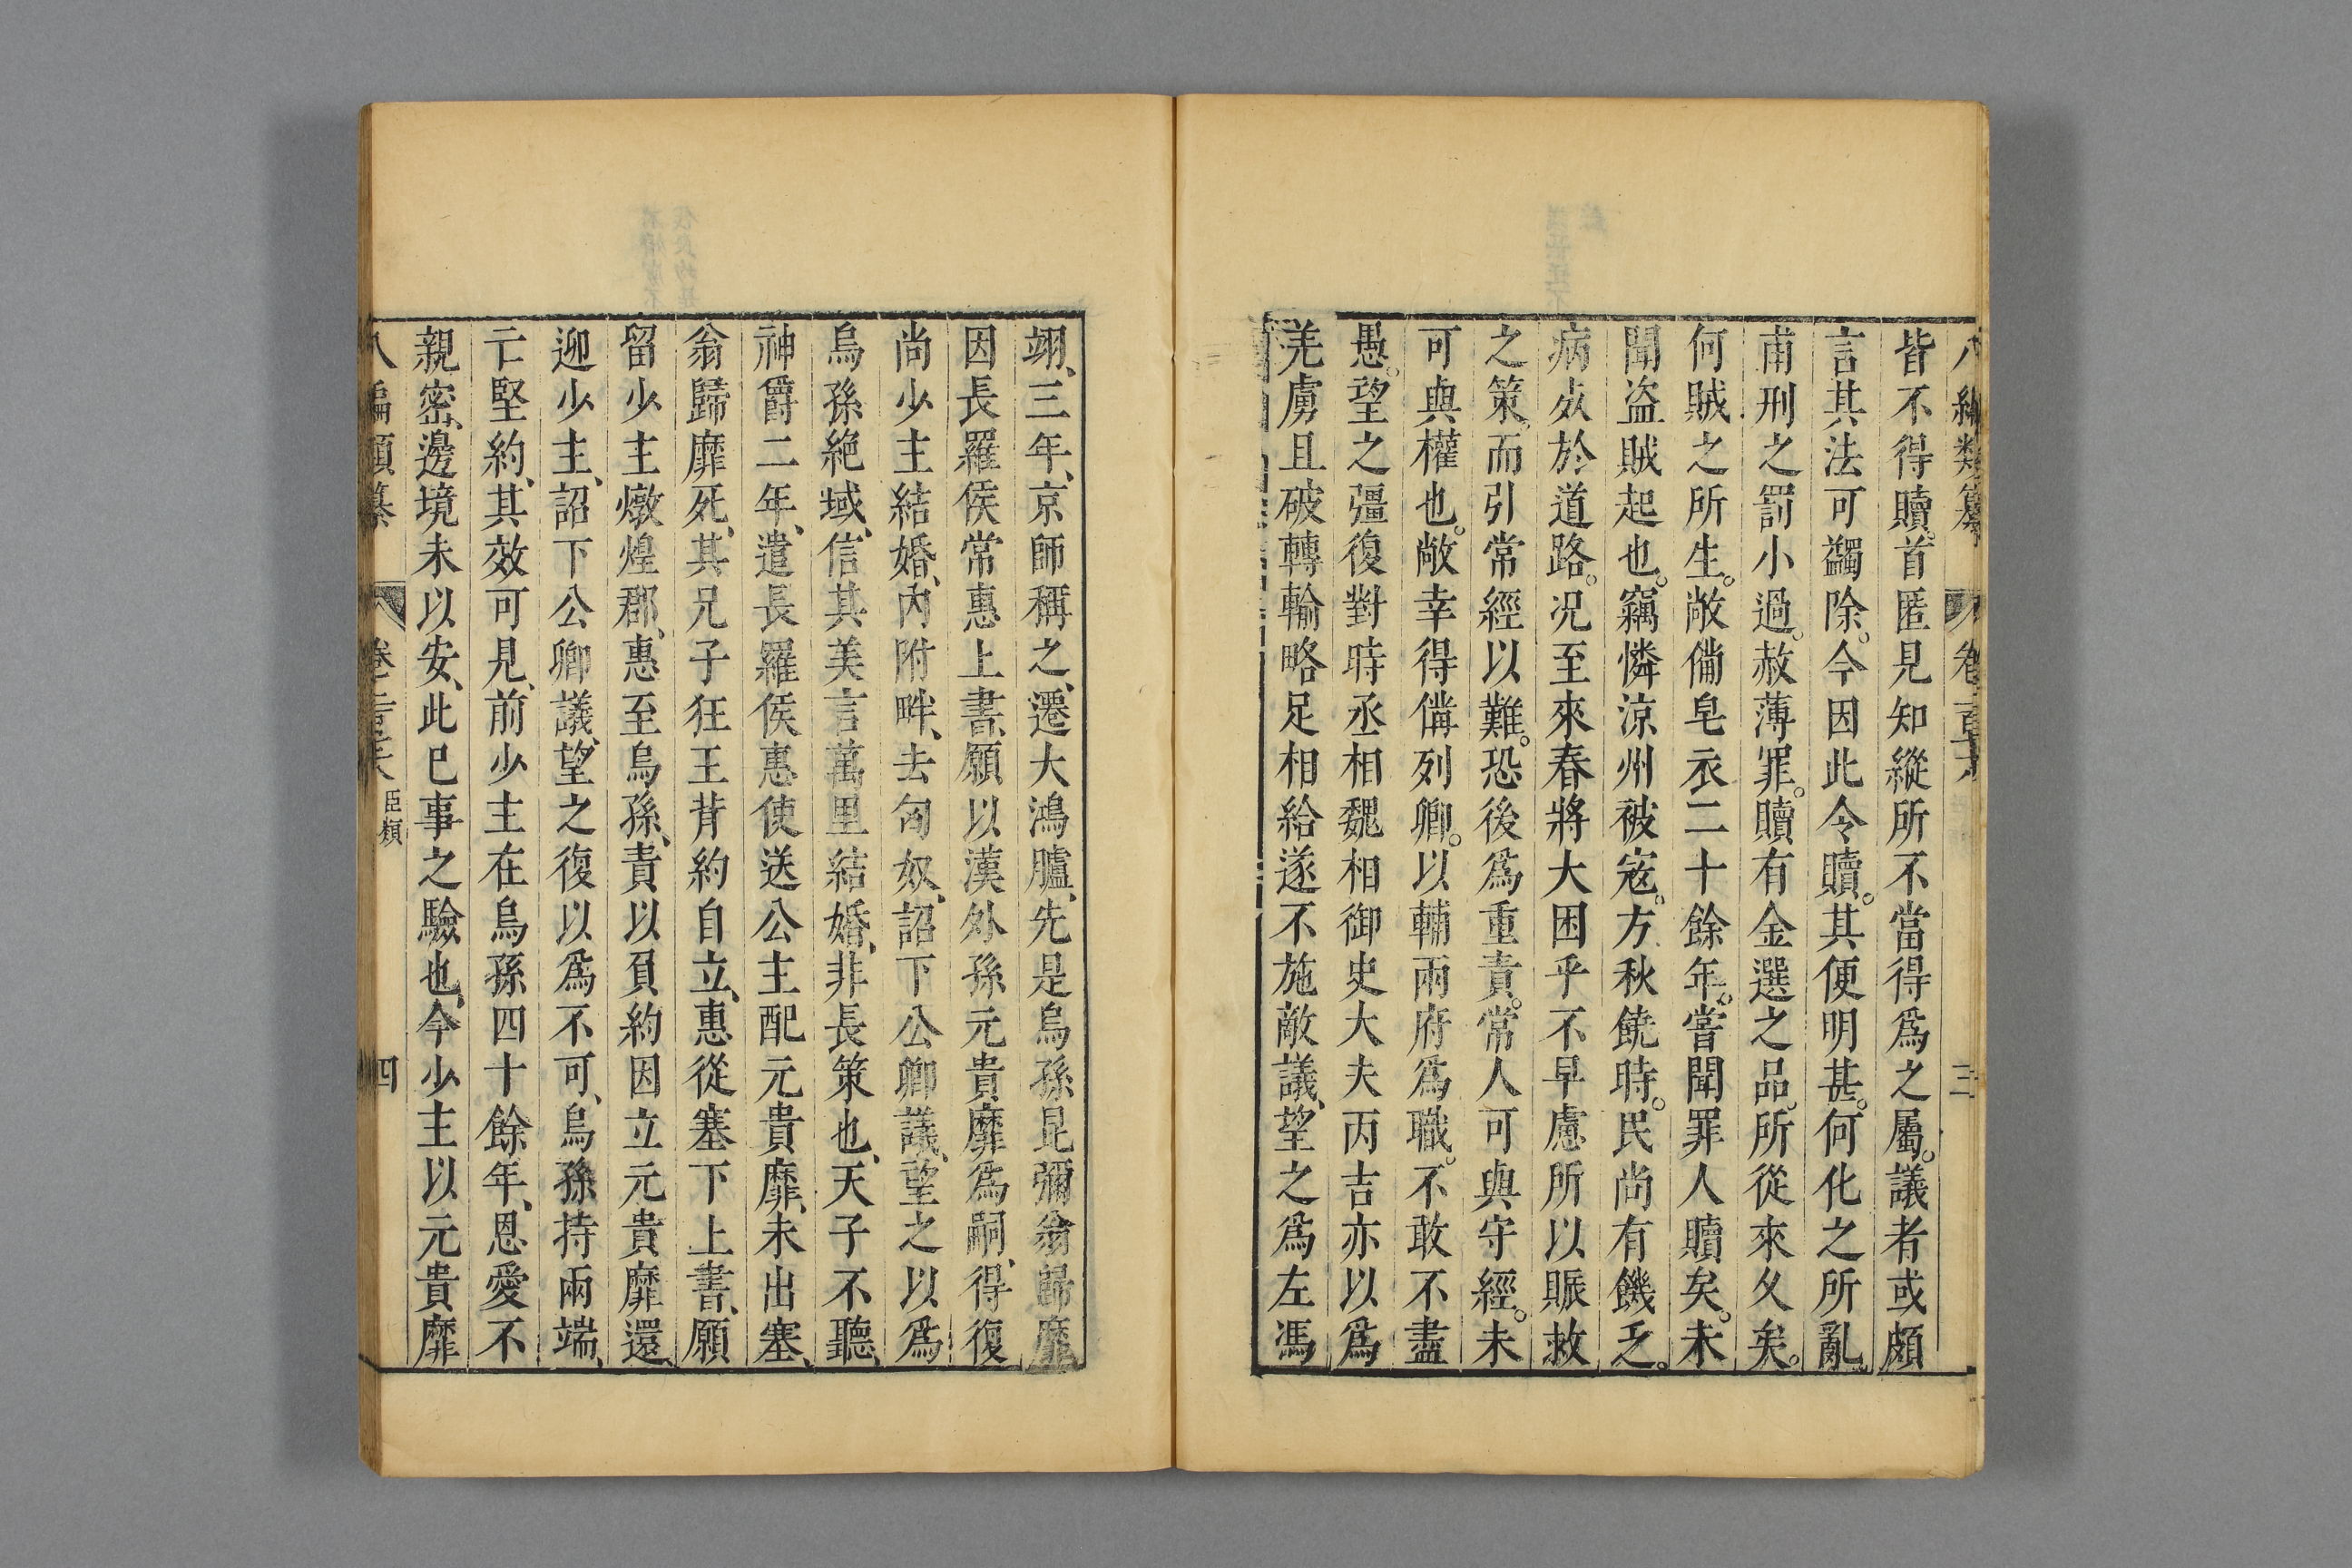 皆不得贖。首匿見知縱所不當得爲之屬。議者或頗
言其法可蠲除。今因此令贖。其便明甚。何化之所亂。
甫刑之罰小過。赦薄罪。贖有金選之品。所從來久矣。
何賊之所生。敞備皂衣二十餘年。嘗聞罪人贖矣。未
聞盗賊起也。竊憐涼州被寇。方秋饒時。民尚有饑乏。
病死於道路。况至來春將大困乎不早慮所以賑救
之策。而引常經以難。恐後爲重責。常人可與守經。未
可與權也。敞幸得備列卿。以輔兩府爲職。不敢不盡
愚。望之彊復對時丞相魏相御史大夫丙吉亦以爲
羌虜且破轉輸略足相給遂不施敞議、望之爲左馮
翊、三年、京師稱之、遷大鴻臚、先是烏孫昆彌翁歸靡
因長羅侯常惠上書、願以漢外孫元貴靡爲嗣、得復
尚少主結婚、內附畔、去匈奴、詔下公卿議、望之以爲
烏孫絶域、信其美言萬里結婚、非長策也、天子不聽、
神爵二年、遣長羅侯惠使送公主配元貴靡、未出塞、
翁歸靡死、其兄子狂王背約自立、惠從塞下上書、願
留少主燉煌郡、惠至烏孫、責以負約因立元貴靡還、
迎少主、詔下公卿議、望之復以爲不可、烏孫持兩端、
亡堅約、其效可見、前少主在烏孫四十餘年、恩愛不
親密、邊境未以安、此已事之驗也、今少主以元貴靡
八編類纂 卷 臣類 四